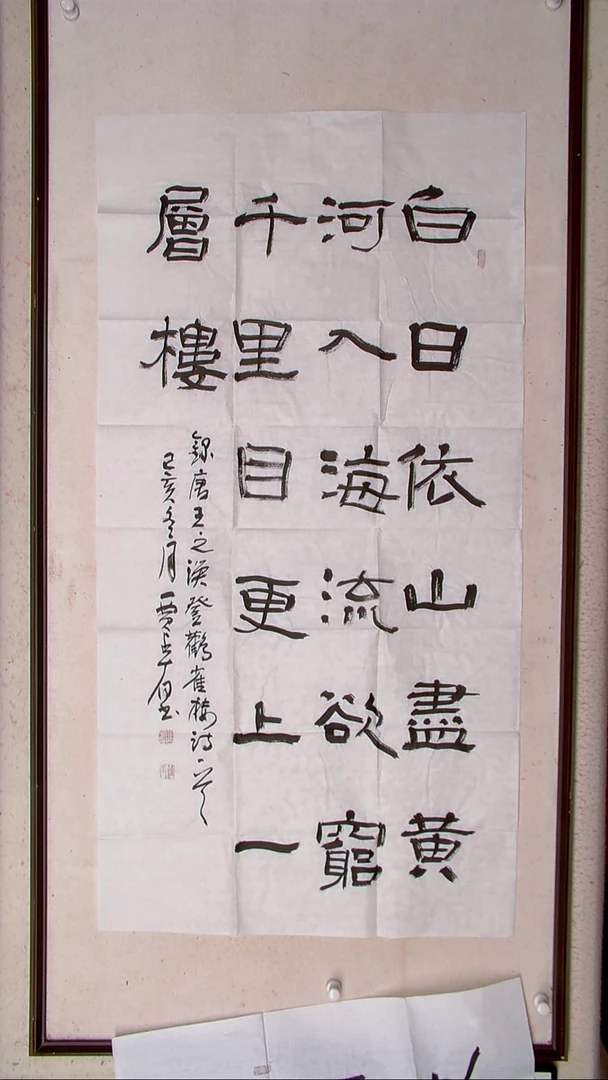 白日依山盡黃
河入海流欲窮
千里目更上一
層樓
錄唐王之渙登鸛雀樓詩一首
己亥冬月